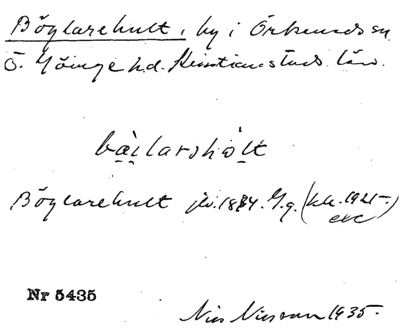 Böglarehult, by i Örkenads sn
Ö. Göinge hd. Kristianstads län.
bàilarshòlt
Böglarehult jb. 1884. G.g. (kk. 1921-
etc)
Nr 5435
Nils Nilsson 1935.